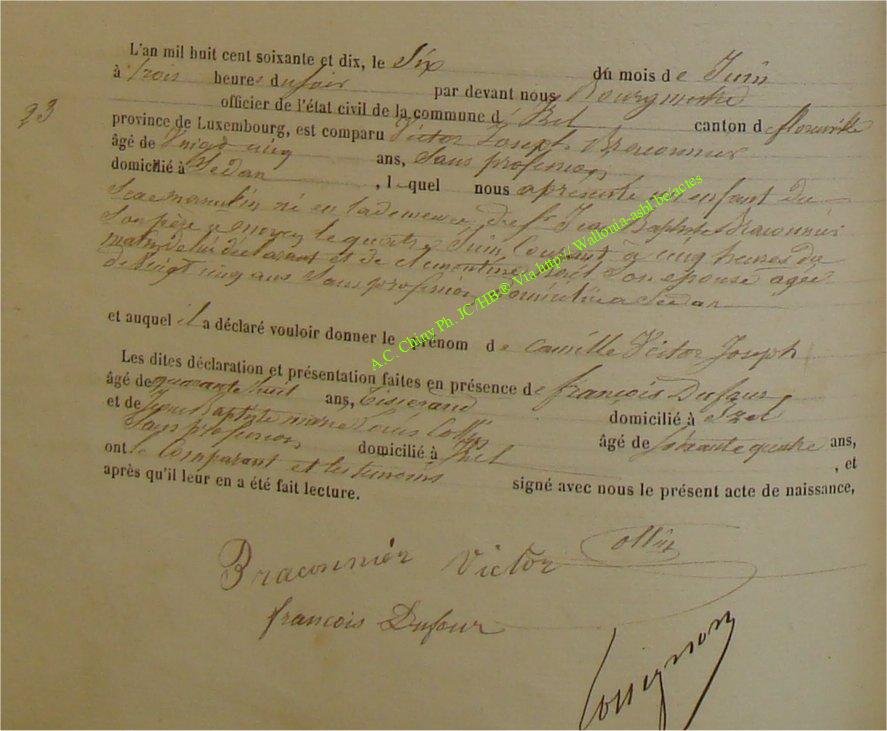 L'an mil huit cent soixante et dix, le Six du mois de Juin
à trois heures du soir par devant nous Bourgmestre
23
officier de l'état civil de la commune d'Izel canton de florenville
province de Luxembourg, est comparu Victor Joseph Braconnier
âgé de vingt cinq ans, Sans profession
domicilié à Sedan, lequel nous a présenté un enfant du
Sexe masculin né en la demeure de Jean Baptiste Braconnier
Son père a moyen le quatre Juin Courant à cinq heures du
matin de lui déclarant et de clementine Son épouse agée
de vingt cinq ans Sans profession domiciliée a Sedan
et auquel il a déclaré vouloir donner le prénom de Camille Victor Joseph
Les dites déclaration et présentation faites en présence de françois Dufour
âgé de quarante huit ans, tisserand domicilié à Izel
et de Jean Baptiste marie Louis Collin âgé de soixante quatre ans,
Sans profession domicilié à Izel, et
ont le Comparant et les temoins signé avec nous le présent acte de naissance,
après qu'il leur en a été fait lecture.
Braconnier Victor Collin
françois Dufour
A.C. Chiny Ph. JC/HB® Via http://Wallonia-asbl.be/actes